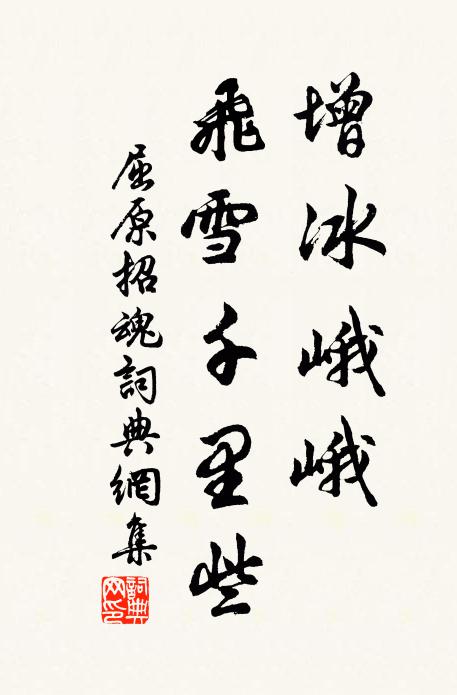 增冰峨峨
飛雪千里些
屈原招魂詞典網集
詞典網印